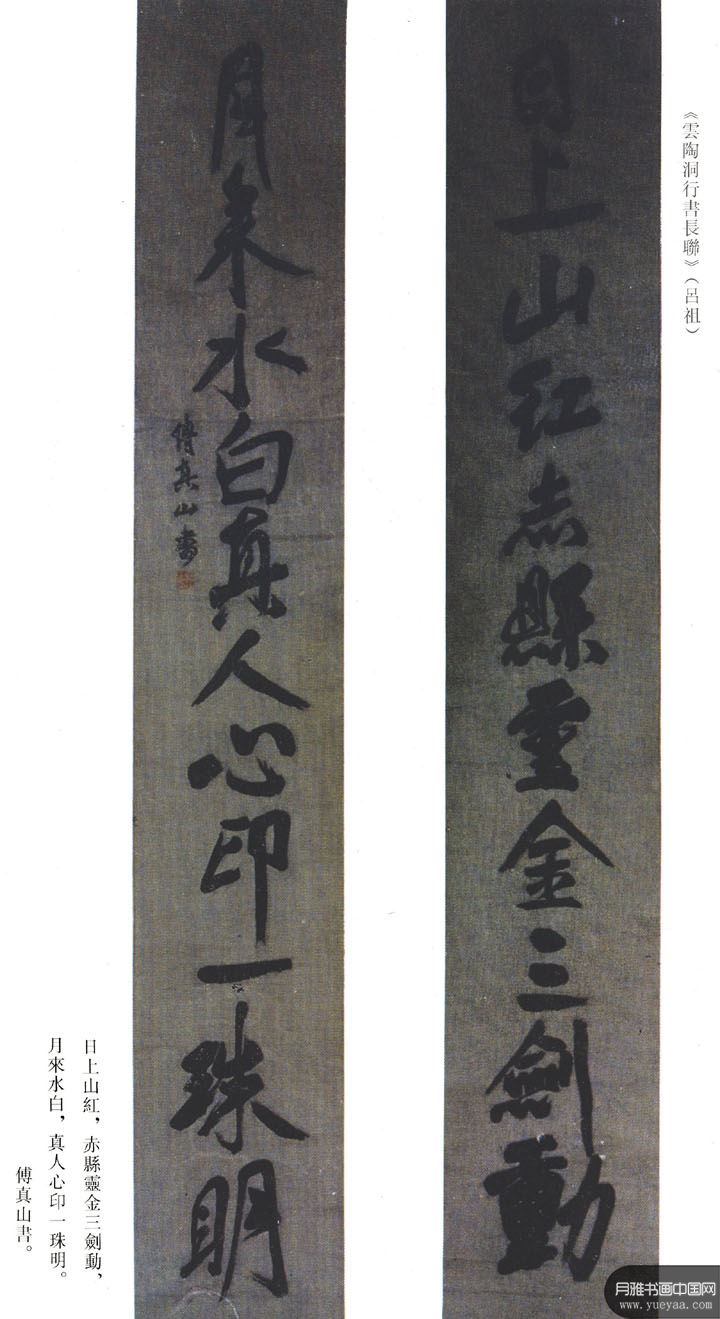 《雲陶洞行書長聯》（呂祖）
日上山红赤縣霊金三劍動
月来水白真人心印一珠明
傅真山書
日上山紅，赤縣靈金三劍動，
月來水白，真人心印一珠明。
傅真山書。
月雅书画中国网
www.yueyaa.com